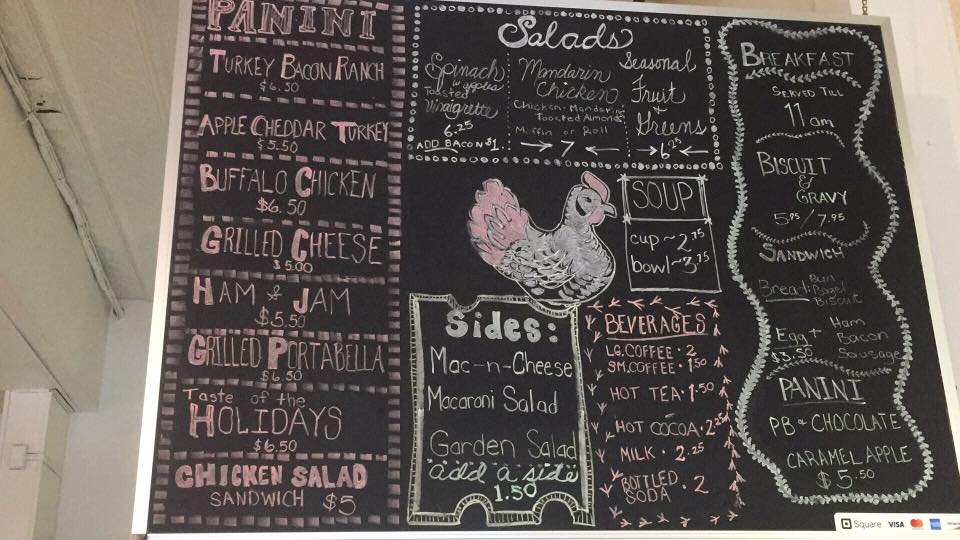 PANINI
TURKEY BACON RANCH
$6.50
APPLE CHEDDAR TURKEY
$5.50
BUFFALO CHICKEN
$6.50
GRILLED CHEESE
$5.00
HAM & JAM
$5.50
GRILLED PORTABELLA
$6.50
Taste of the
HOLIDAYS
$6.50
CHICKEN SALAD
SANDWICH $5
Salads
Spinach
w/
Toasted
Vinaigrette
6.25
ADD BACON $1
Mandarin
Chicken
Chicken - Mandarin
Toasted Almonds
Muffin or Roll
7
Seasonal
Fruit
+
Greens
6.25
SOUP
cup ~ 2.75
bowl ~ 3.75
Sides:
Mac-n-Cheese
Macaroni Salad
Garden Salad
add a side
1.50
BEVERAGES
LG. COFFEE · 2
SM. COFFEE · 1.50
HOT TEA · 1.50
HOT COCOA · 2.25
MILK · 2.25
BOTTLED
SODA · 2
BREAKFAST
SERVED TILL
11 am
BISCUIT
&
GRAVY
5.95/7.95
SANDWICH
Bread:
Bun
Bagel
Biscuit
Egg +
$3.50
Ham
Bacon
Sausage
PANINI
PB & CHOCOLATE
CARAMEL APPLE
$5.50
Square VISA